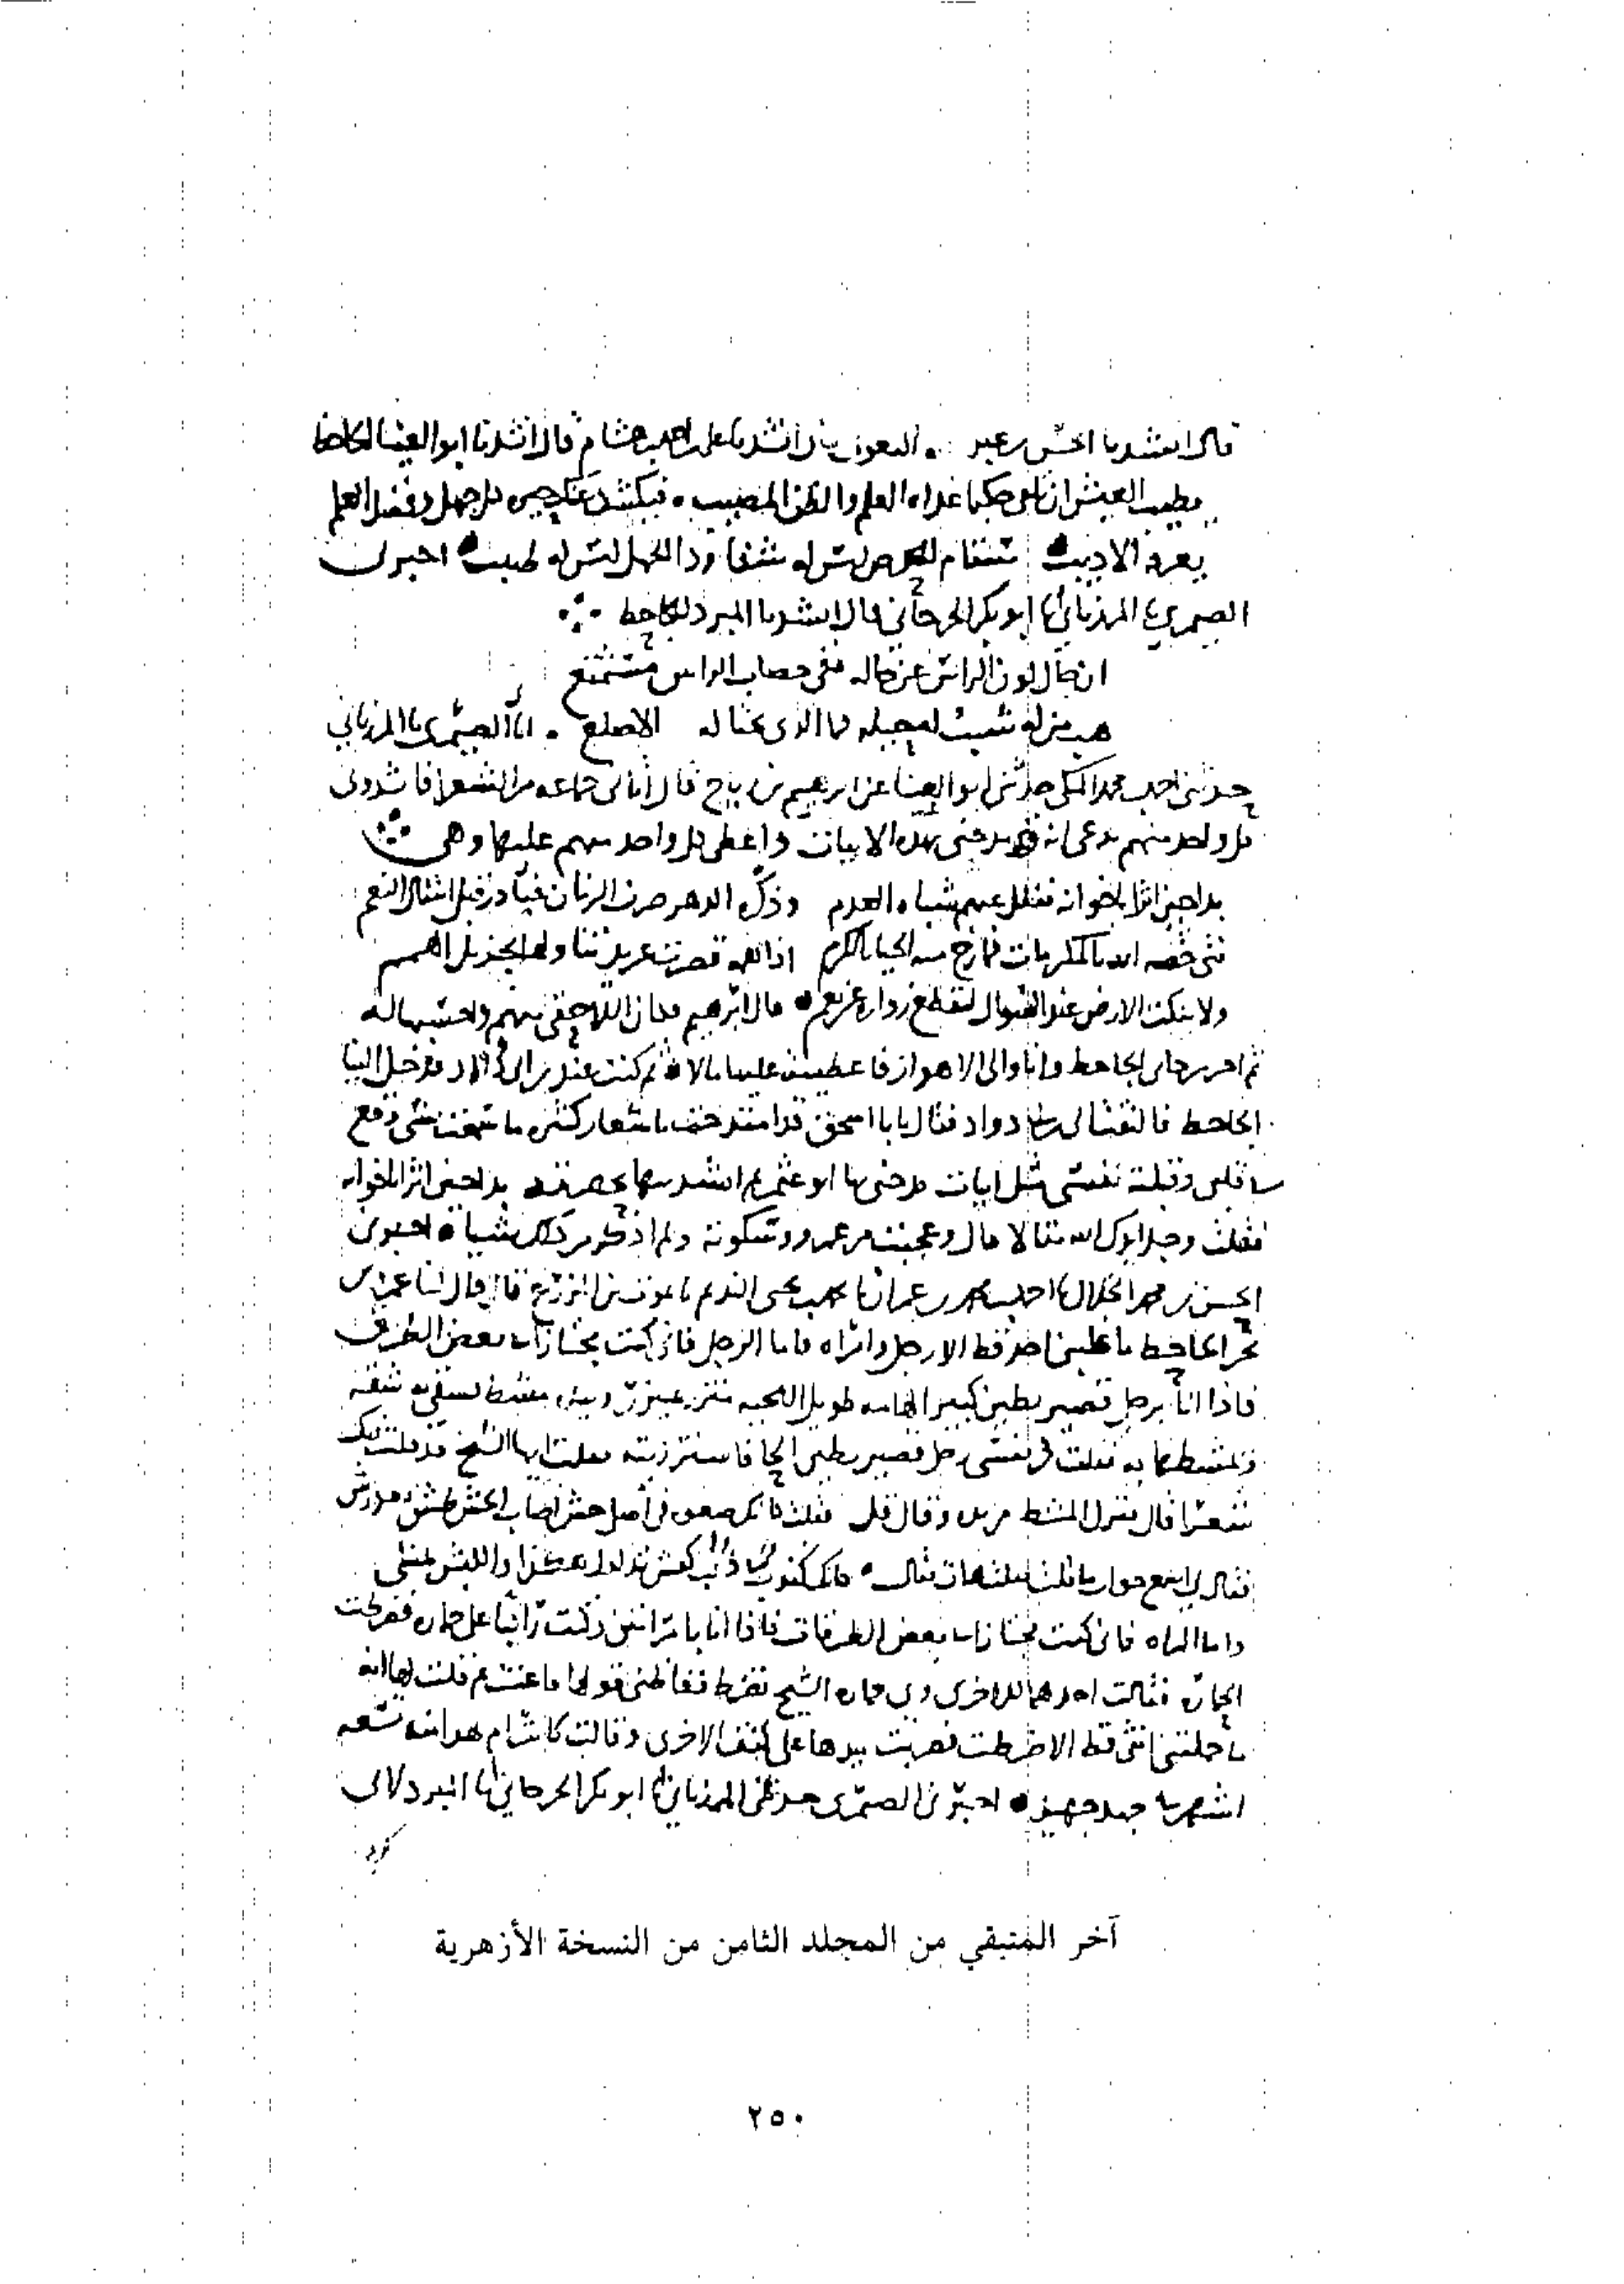 قال انشدنا الحسن بن عبد ... قال انشدنا علي بن احمد بن هشام قال انشدنا ابو العينا للجاحظ
يطيب العيش ان تلقى حكيما غذاه العلم والظن المصيب فيكشف عنك حيرة كل جهل وفضل العلم
يعرفه الاديب سقام الحرص ليس له شفا وداء الجهل ليس له طبيب اخبرني
الصيمري نا المرزباني نا ابو بكر الجرجاني قال انشدنا المبرد للجاحظ
ان حال لون الراس عن حاله ففي خضاب الراس مستمتع
هب من له شيب له حيله فما الذي يحتاله الاصلع . انا الصيمري نا المرزباني
حدثني احمد بن محمد المكي حدثني ابو العينا عن ابرهيم بن رباح قال اتاني جماعه من الشعرا فانشدوني
كل واحد منهم يدعي انه مدحني بهذه الابيات واعطي كل واحد منهم عليها وهي
بدا حين اثرا باخوانه ففلل عنهم شباه العدم وذكره الدهر صرف الزمان فبادر قبل انتقال النعم
فتى خصه الله بالمكرمات فمازج منه الحيا بالكرم اذا همه قصرت عن يد تناولها بجزيل الهمم
ولا ينكت الارض عند السوال ليقطع زواره عن نعم قال ابرهيم فكان اللاحقي منهم واحسبها له
ثم اخر من جاني الجاحظ وانا والي الاهواز فاعطيته عليها مالا ثم كنت عند بن ابي دواد فدخل الينا
الجاحظ فالتفت الى بن ابي دواد فقال يابا اسحق قد امتدحت باشعار كثيره ما سمعت شي وقع
في قلبي وقبلته نفسي مثل ابيات مدحني بها ابو عثمن ثم انشدنيها بحضرته بدا حين اثرا باخوانه
فقلت وجد ايدك الله مقالا فقال وعجبت من عمرو وسكوته ولم اذكر من ذلك شيا اخبرني
الحسن بن محمد الخلال نا احمد بن محمد بن عمران نا محمد بن يحيى النديم نا يموت بن المزرع قال قال لنا عمرو بن
بحر الجاحظ ما غلبني احد قط الا رجل وامراه فاما الرجل فاني كنت مجتازا في بعض الطرق
فاذا انا برجل قصير بطين كبير الهامه طويل اللحيه متزر بميزر وبيده مشط يسقي به شقه
ويمشطها به فقلت في نفسي رجل قصير بطين الحا فاستزريته فقلت ايها الشيخ قد قلت فيك
شعرا قال فترك المشط من يده وقال قل فقلت كانك صعوه في اصل حش اصاب الحش طش بعد رش
فقال لي اسمع جواب ما قلت فقلت هات فقال كانك كندب في ذنب كبش تدلدل هكذا والكبش يمشي
واما المراه فاني كنت مجتازا ببعض الطرقات فاذا انا بامراتين وكنت راكبا على حماره فضرطت
الحماره فقالت احدهما للاخرى وي حماره الشيخ تضرط فغاظني قولها فاعننت ثم قلت لها انه
ما حملتني انثى قط الا ضرطت فضربت بيدها على كتف الاخرى وقالت كانت ام هذا منه تسعه
اشهر في جهد جهيد اخبرني الصيمري حدثني المرزباني نا ابو بكر الجرجاني نا المبرد قال
آخر المتبقي من المجلد الثامن من النسخة الأزهرية
٢٥٠